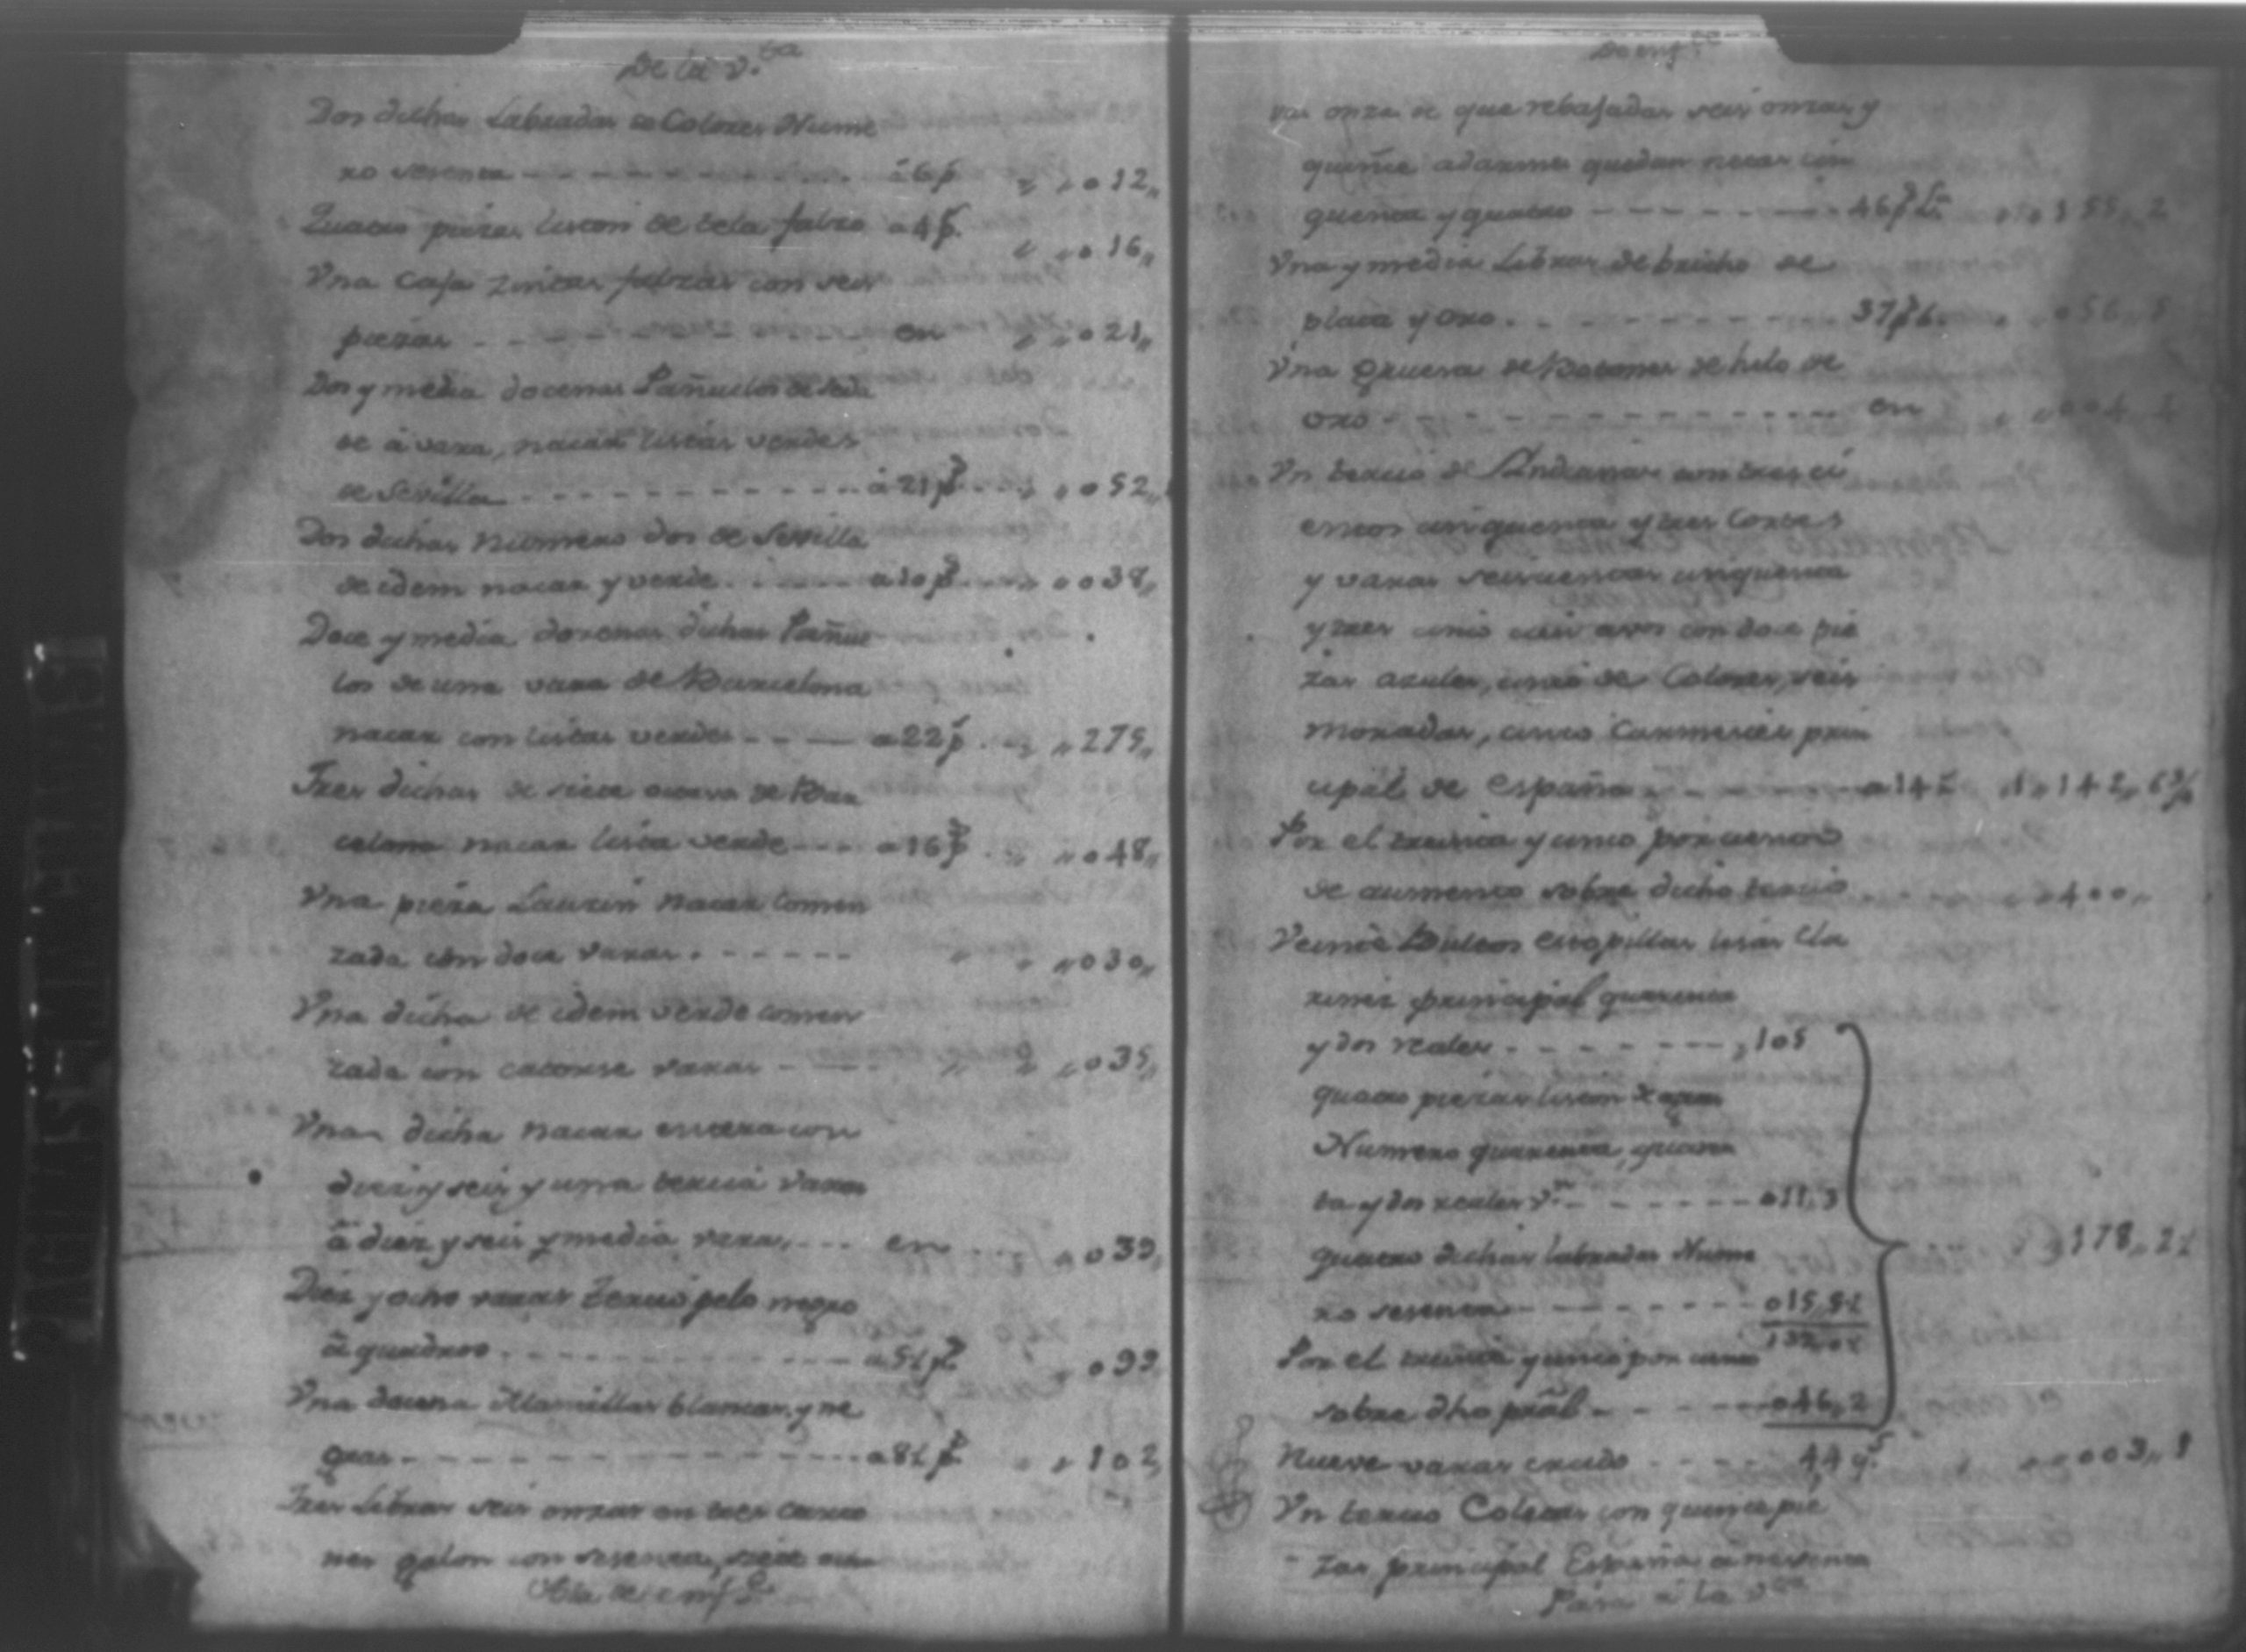 De la v.ta
Dos dichas Labradas de Colores Nume
ro sesenta - - - - a 6 p „ „ 012„
Quatro piezas liston de tela falza a 4 p. „ „ 016„
Vna Caja zintas falzas con seis
piezas - - - - en „ „ 021„
Dos y media docenas Pañuelos de seda
de á vara, nacar listas verdes
de Sevilla - - - - a 21 p „ „ 052„
Dos dichas numero dos de Sevilla
de idem nacar y verde - - - „ „ 038„
Doce y media dozenas dichas Pañue
los de una vara de Barcelona
nacar con listas verdes - - - a 22 p „ „ 275„
Tres dichas de siete octava de Bar
celona nacar lista verde - - - a 16 p „ „ 048„
Vna pieza Laurin nacar comen
zada con doce varas - - - „ „ 030„
Vna dicha de idem verde comen
zada con catorse varas - - - „ „ 035„
Vna dicha nacar entera con
diez y seis y una tercia varas
á diez y seis y media varas - - - en „ 039
Diez y ocho varas tercio pelo negro
á quadros - - - a 5½ p „ 099
Vna docena Mantillas blancas y ne
gras - - - a 8½ p „ „ 102
Tres Libras seis onzas en tres carto
nes galon con sesenta, siete octa
Vta de enf.te
De enf.te
vas onza de que rebajadas seis onzas y
quince adarmes quedan netas cin
quenta y quatro - - - „ „ 155„ 2
Vna y media Libras de bricho de
plata y oro - - - 37 p 6 „ 056„
Vna gruesa de Botones de hilo de
oro - - - en „ „ 004„
Vn tercio de Indianas con tres ci
entos cinquenta y tres Cortes
y varas seiscientas cinquenta
y tres cinco seis avos con doce pie
zas azules, cinco de Colores, seis
moradas, cinco Carmesies prin
cipal de España - - - a 14 „1„142„6
Por el treinta y cinco por ciento
de aumento sobre dicho tercio - - - „ 400„
Veinte Bultos escopillas lisas Cla
rines principal quarenta
y dos reales - - - „105
quatro piezas liston
Numero quarenta, quaren
ta y dos reales v.n - - - 011„3
quatro dichas labradas Nume
ro sesenta - - - 015„5½
132„0½
Por el treinta y cinco por ciento
sobre dho pral - - - 046„2
178„2½
Nueve varas crudo - - - 44 g.s „ „ 003„
Vn tercio Coletas con quince pie
zas principal España a noventa
Pasa á la v.ta